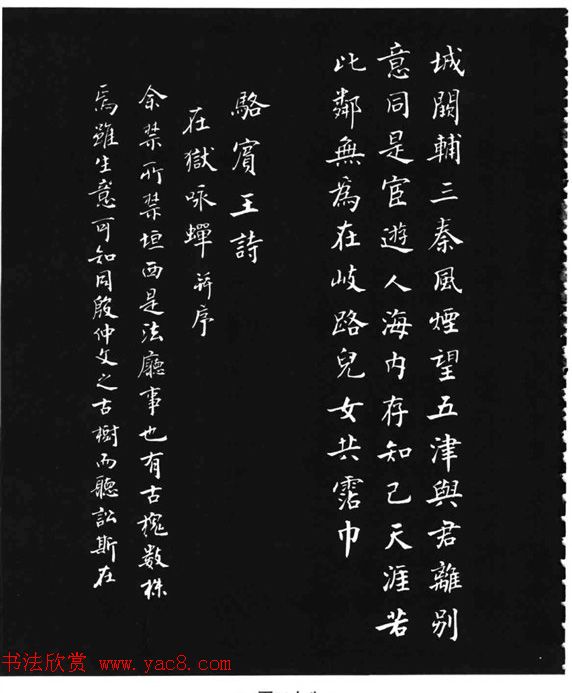 城闕輔三秦風煙望五津與君離別
意同是宦遊人海内存知己天涯若
比鄰無為在岐路兒女共霑巾
駱賓王詩
在獄咏蟬并序
余禁所禁垣西是法廳事也有古槐数株
焉雖生意可知同殷仲文之古樹而聽訟斯在
书法欣赏 www.yac8.com